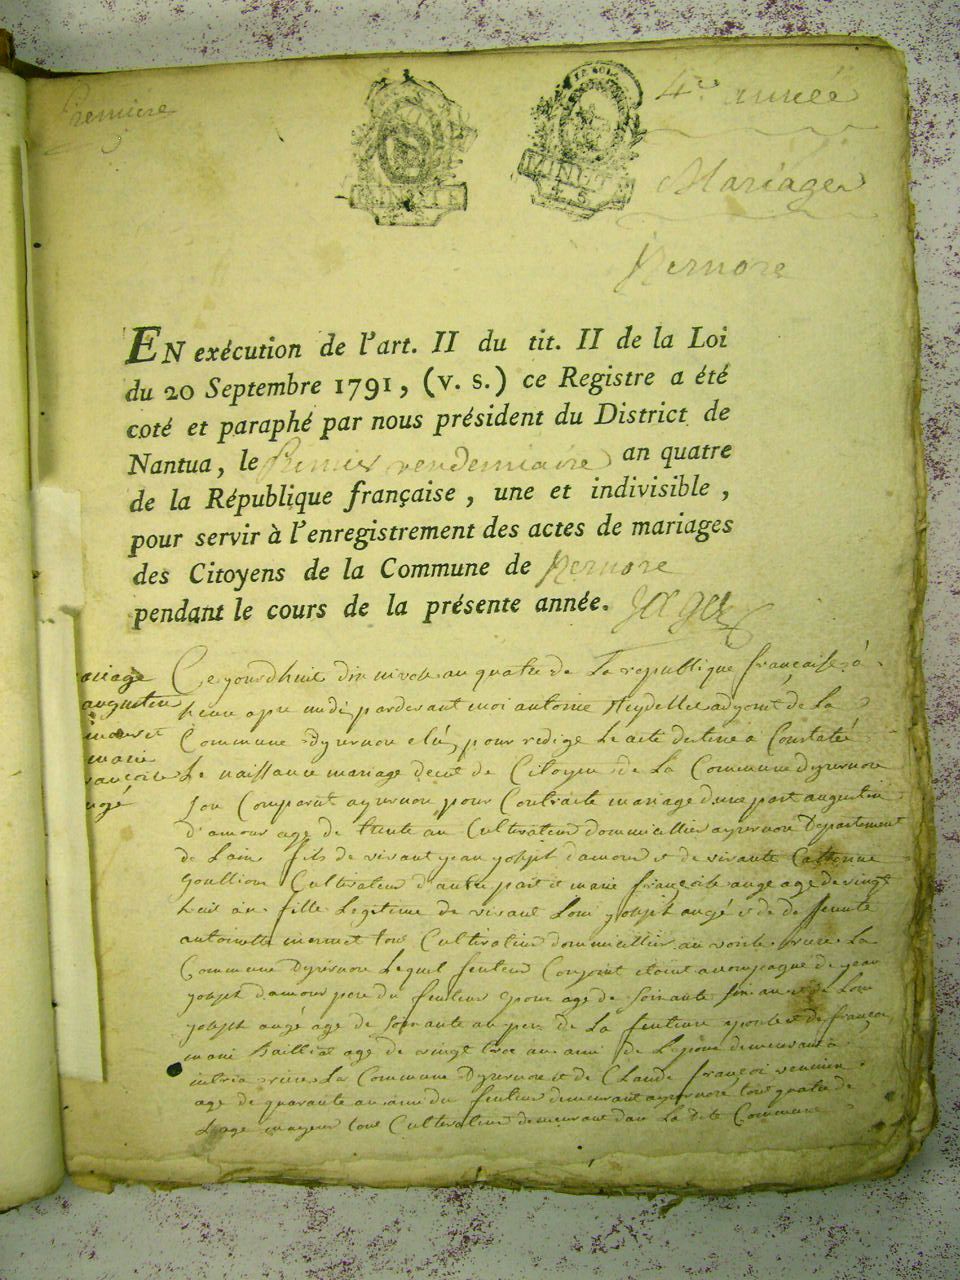 Premiere
4e année
Mariages
MINUTE
MINUTE
Yzernore
EN exécution de l'art. II du tit. II de la Loi
du 20 Septembre 1791, (v. s.) ce Registre a été
coté et paraphé par nous président du District de
Nantua, le Premier vendemiaire an quatre
de la République française, une et indivisible,
pour servir à l'enregistrement des actes de mariages
des Citoyens de la Commune de Yzernore
pendant le cours de la présente année.
ariage
augusten
marie
Ce yourdhuit dix nivose an quatre de La republique française à
heure apre midi pardevant moi antoine Reydellet adjoint de La
Commune elû pour redige Le acte destine a Constaté
Le naissance mariage decet de Citoyen de La Commune
son Comparut pour Contraite mariage dune part augustin
d'amour age de trente an Cultivateur dommicillier Departement
de Lain fils de vivant yean d'amour et de vivante Catherine
Goullion Cultivateur d'autre part et marie françoise auge age de vingt
huit an fille Legitime de vivant Loui augé et de
antoinette mermet tous Cultivateur dommicillier La
Commune Lequel futeur Conjoint etoint accompagne de yean
d'amour pere du futeur epour age de soixante six an et de Loui
augé age de soixante an pere de La future et de françoi
marie age de vingt troi an ami de Lepour demeurant a
La Commune et de Claude françoi
age de quarante an ami du futeur demeurant tous quatre de
Lage mayeur tous Cultivateur demeurant dans La dite Commune